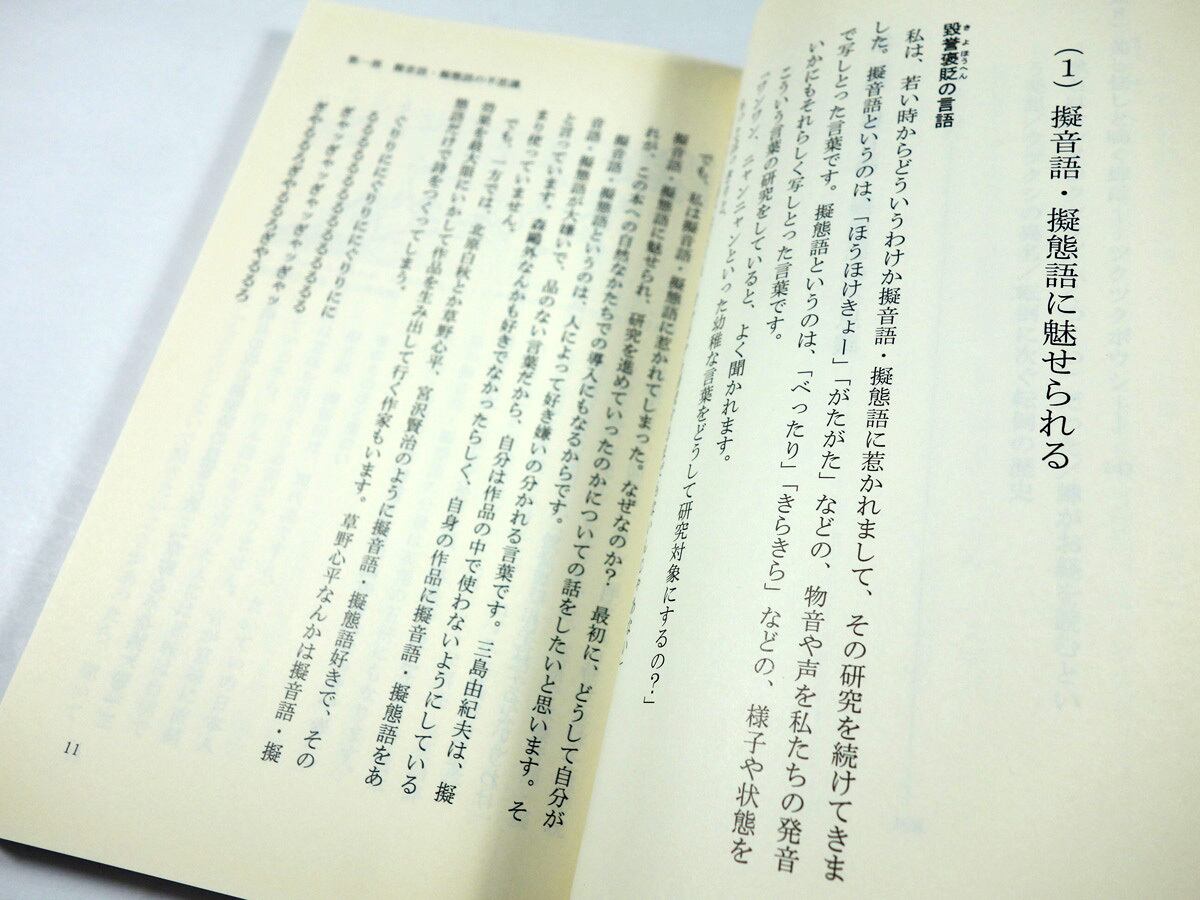 (1) 擬音語・擬態語に魅せられる
毀誉褒貶の言語
きよほうへん
私は、若い時からどういうわけか擬音語・擬態語に惹かれまして、その研究を続けてきま
した。擬音語というのは、「ほうほけきょー」「がたがた」などの、物音や声を私たちの発音
で写しとった言葉です。擬態語というのは、「べったり」「きらきら」などの、様子や状態を
いかにもそれらしく写しとった言葉です。
こういう言葉の研究をしていると、よく聞かれます。
「ワンワン、ニャンニャンといった幼稚な言葉をどうして研究対象にするの?」
第一部 擬音語・擬態語の不思議
でも、私は擬音語・擬態語に惹かれてしまった。なぜなのか? 最初に、どうして自分が
擬音語・擬態語に魅せられ、研究を進めていったのかについての話をしたいと思います。そ
れが、この本への自然なかたちでの導入にもなるからです。
擬音語・擬態語というのは、人によって好き嫌いの分かれる言葉です。三島由紀夫は、擬
音語・擬態語が大嫌いで、品のない言葉だから、自分は作品の中で使わないようにしている
と言っています。森鷗外なんかも好きでなかったらしく、自身の作品に擬音語・擬態語をあ
まり使っていません。
でも、一方では、北原白秋とか草野心平、宮沢賢治のように擬音語・擬態語好きで、その
効果を最大限にいかして作品を生み出して行く作家もいます。草野心平なんかは擬音語・擬
態語だけで詩をつくってしまう。
ぐりりににぐりりににぐりりに
るるるるるるるるるるるるるる
ぎゃッぎゃッぎゃッぎゃッ
ぎやるるろぎやるるろぎやるるろ
11